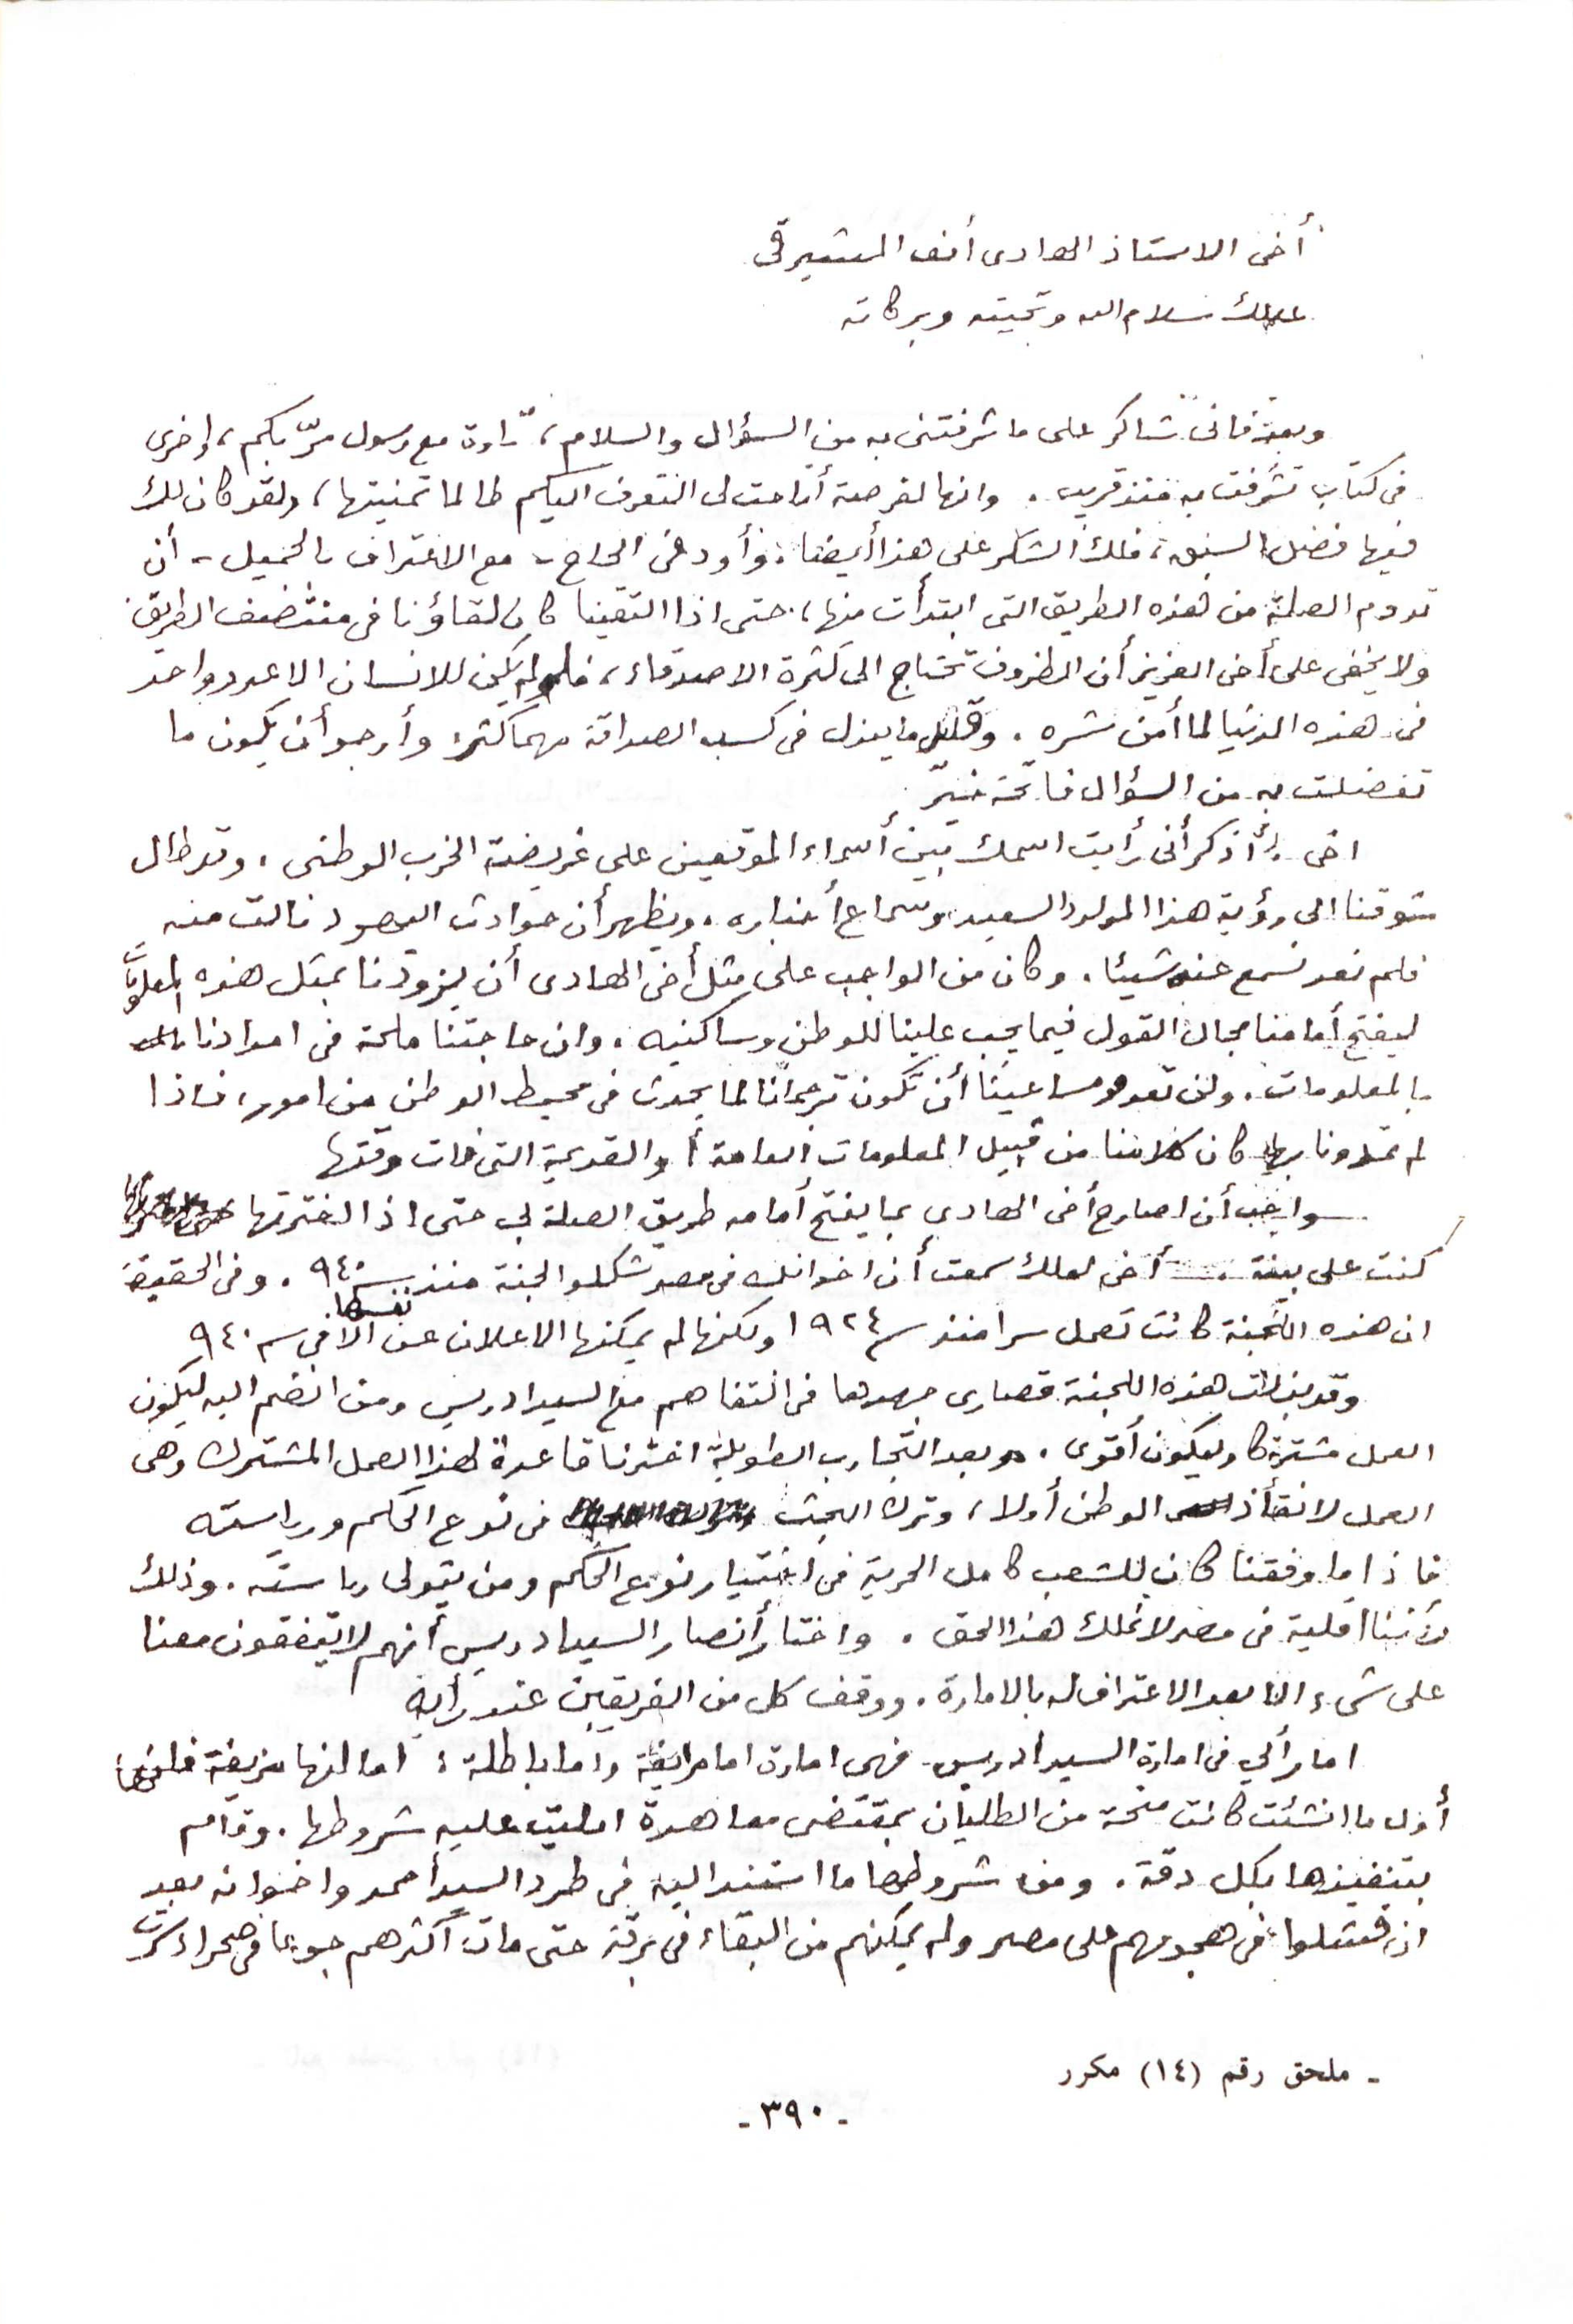 أخى الاستاذ الهادى أفند المشيرقى
عليك سلام الله وتحيته وبركاته
وبعد فانى شاكر على ما شرفتنى به من السؤال والسلام، تارة مع رسول مرّ بكم، واخرى
فى كتاب تشرفت به منذ قريب. وانها لفرصة أتاحت لى التعرف اليكم طالما تمنيتها، ولقد كان لك
فيها فضل السبق، فلك الشكر على هذا أيضا. وأود من الحاج - مع الاعتراف بالجميل - أن
تدوم الصلة من هذه الطريق التى ابتدأت منها، حتى اذا التقينا كان لقاؤنا فى منتصف الطريق
ولا يخفى على أخى العزيز أن الظروف تحتاج الى كثرة الاصدقاء، فلو لم يكن للانسان الا عدو واحد
فى هذه الدنيا لما أمن شره. وقليل ما يبذل فى كسب الصداقة مهما كثر وأرجو أن يكون ما
تفضلت به من السؤال فاتحة خير
اخى أذكر أنى رأيت اسمك بين أسماء الموقعين على عريضة الحزب الوطنى. وقد طال
شوقنا الى رؤية هذا المولود السعيد وسماع أخباره. ويظهر أن حوادث اليهود نالت منه
فلم نعد نسمع عنه شيئا. وكان من الواجب على مثل أخى الهادى أن يزودنا بمثل هذه المعلومات
ليفتح أمامنا مجال القول فيما يجب علينا للوطن وساكنيه. وان حاجتنا ملحة فى امدادنا
بالمعلومات. ولن تعدو مساعينا أن تكون ترجمانا لما يحدث فى محيط الوطن من امور، فاذا
لم تمدونا بها كان كلامنا من قبيل المعلومات العامة أو القديمة التى فات وقتها
واحب أن اصارح أخى الهادى بما يفتح أمامه طريق الصلة بى حتى اذا اخترتها
كنت على بينة. أخى لعلك سمعت أن اخوانك فى مصر شكلوا لجنة منذ سنة ٩٤٠. وفى الحقيقة
ان هذه اللجنة كانت تعمل سرا منذ سنة ١٩٢٤ ولكنها لم يمكنها الاعلان عن نفسها الا فى سنة ٩٤٠
وقد بذلت هذه اللجنة قصارى جهدها فى التفاهم مع السيد ادريس ومن انضم اليه ليكون
العمل مشتركا وليكون أقوى. وبعد التجارب الطويلة اخترنا قاعدة لهذا العمل المشترك وهى
العمل لانقاذ الوطن أولا، وترك البحث فى نوع الحكم ورياسته
فاذا ما وفقنا كان للشعب كامل الحرية فى اختيار نوع الحكم ومن يتولى رياسته. وذلك
لأننا اقلية فى مصر لا نملك هذا الحق. واختار أنصار السيد ادريس أنهم لا يتفقون معنا
على شىء الا بعد الاعتراف له بالامارة. ووقف كل من الفريقين عند رأيه
اما رأيي فى امارة السيد ادريس فهى امارة اما مزيفة واما باطلة: اما انها مزيفة فلأنها
أول ما انشئت كانت منحة من الطليان بمقتضى معاهدة امليت عليه شروطها. وقام
بتنفيذها بكل دقة. ومن شروطها ما استند اليه فى طرد السيد أحمد واخوانه بعد
ان فشلوا فى هجومهم على مصر ولم يمكنهم من البقاء فى برقة حتى مات أكثرهم جوعا فى صحراء سرت
- ملحق رقم (١٤) مكرر
- ٣٩٠ -